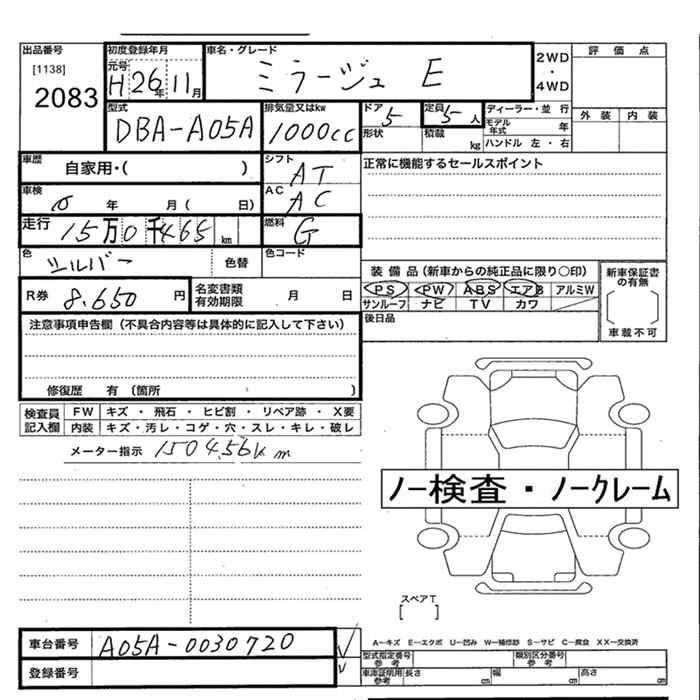 出品番号
[1138]
2083
初度登録年月
元号
H 26年 11月
車名・グレード
ミラージュ E
2WD
・
4WD
評価点
外装 内装
型式
DBA-A05A
排気量又はkw
1000cc
ドア 5
形状
定員 5 人
積載 kg
ディーラー・並行
モデル年式 年
ハンドル 左・右
車歴 自家用・( )
シフト AT
正常に機能するセールスポイント
車検 年 月( 日)
AC AC
走行 15万0千465 km
燃料 G
色 シルバー 色替
色コード
R券 8,650 円
名変書類有効期限 月 日
装備品(新車からの純正品に限り○印)
PS PW ABS エアB アルミW
サンルーフ ナビ TV カワ
新車保証書の有無
[ ]
車載不可
後日品
注意事項申告欄(不具合内容等は具体的に記入して下さい)
修復歴 有 (箇所 )
検査員記入欄
FW キズ ・ 飛石 ・ ヒビ割 ・ リペア跡 ・ X要
内装 キズ・汚レ・コゲ・穴・スレ・キレ・破レ
メーター指示 150456km
ノー検査・ノークレーム
スペアT
[ ]
車台番号 A05A-0030720
登録番号
A―キズ E―エクボ U―凹み W―補修跡 S―サビ C―腐食 XX―交換済
型式指定番号 参考
類別区分番号 参考
車庫証明用 参考
長さ cm 幅 cm 高さ cm